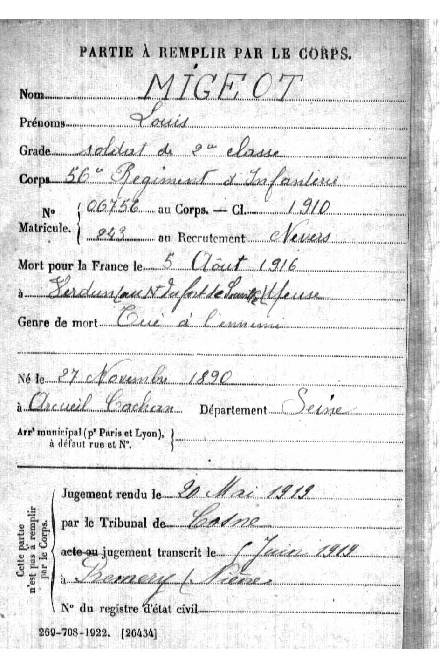 PARTIE À REMPLIR PAR LE CORPS.
Nom MIGEOT
Prénoms Louis
Grade soldat de 2me classe
Corps 56e Régiment d'Infanterie
N° Matricule. { 06756 au Corps. — Cl. 1910
243 au Recrutement Nevers
Mort pour la France le 5 Août 1916
à Verdun (au N. du fort de Souville) Meuse
Genre de mort Tué à l'ennemi
Né le 27 Novembre 1890
à Arcueil Cachan Département Seine
Arrt municipal (pr Paris et Lyon), à défaut rue et N°. }
Cette partie n'est pas à remplir par le Corps.
Jugement rendu le 20 Mai 1919
par le Tribunal de Cosne
acte ou jugement transcrit le Juin 1919
à (Nièvre)
N° du registre d'état civil
269-708-1922. [26434]